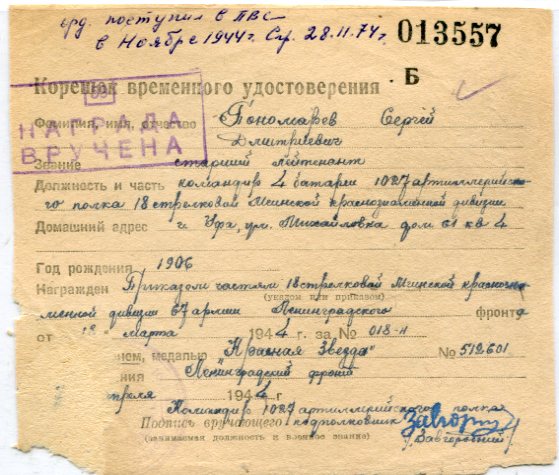 орд. поступил в ПВС
в Ноябре 1944г. Ср. 28.11.74г.
013557
Корешок временного удостоверения Б
69
НАГРАДА
ВРУЧЕНА
Фамилия, имя, отчество Пономарев Сергей
Дмитриевич
Звание старший лейтенант
Должность и часть командир 4 батареи 1027 артиллерийско-
го полка 18 стрелковой Мгинской краснознаменной дивизии
Домашний адрес г. Уфа, ул. Михайловка дом 61 кв 4
Год рождения 1906
Награжден Приказом частям 18 стрелковой Мгинской краснозна-
(указом или приказом)
менной дивизии 67 армии Ленинградского фронта
от марта 1944 г. за № 018-н
нем, медалью "Красная Звезда" № 512601
ния Ленинградский фронт
преля 1944
Командир 1027 артиллерийского полка
Подпись вручающего подполковник
(занимаемая должность и военное звание) /Завгородний/